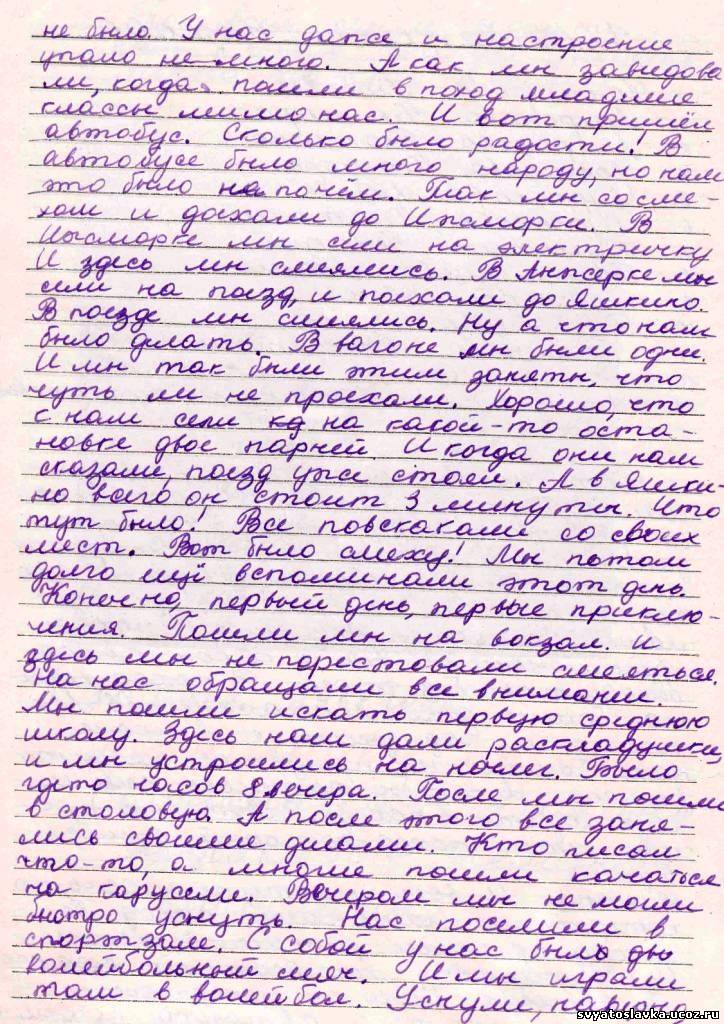 не было. У нас даже и настроение
упало не много. А как мы завидова
ли, когда пошли в поход младшие
классы мимо нас. И вот пришёл
автобус. Сколько было радости! В
автобусе было много народу, но нам
это было не по чём. Так мы со сме-
хом и доехали до Ижморки. В
Ижморке мы сели на электричку
И здесь мы смеялись. В Анжерке мы
сели на поезд, и поехали до Яшкино.
В поезде мы смеялись. Ну а что нам
было делать. В вагоне мы были одни.
И мы так были этим заняты, что
чуть ли не проехали. Хорошо, что
с нам сели на какой-то оста-
новке двое парней. И когда они нам
сказали, поезд уже стоял. А в Яшки-
но всего он стоит 3 минуты. Что
тут было! Все повскакали со своих
мест. Вот было смеху! Мы потом
долго ещё вспоминали этот день
Конечно, первый день, первые приклю-
чения. Пошли мы на вокзал. И
здесь мы не порестовали смеяться.
На нас обращали все внимание.
Мы пошли искать первую среднюю
школу. Здесь нам дали раскладушки,
и мы устроились на ночлег. Было
где то часов 8 вечера. После мы пошли
в столовую. А после этого все заня-
лись своими делами. Кто писал
что-то, а многие пошли качаться
на карусели. Вечером мы не могли
быстро уснуть. Нас поселили в
спортзале. С собой у нас был
волейбольный мяч. И мы играли
там в волейбол. Уснули, наверно
svyatoslavka.ucoz.ru